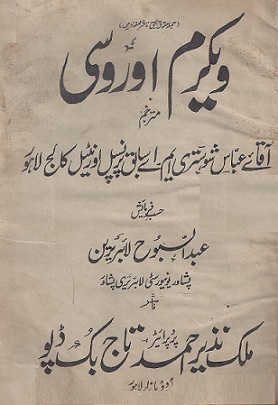 (جملہ حقوق بحق ناشر محفوظ ہیں)
ویکرم اوروسی
مترجم
آقائے عباس شوشتری ایم۔ اے سابق پرنسپل اورنٹیل کالج لاہور
حسب فرمایش
عبدالسبوح لائبریرین
پشاور یونیورسٹی لائبریری پشاور
ناشر
ملک نذیر احمد پروپرائٹر تاج بک ڈپو
اردو بازار لاہور